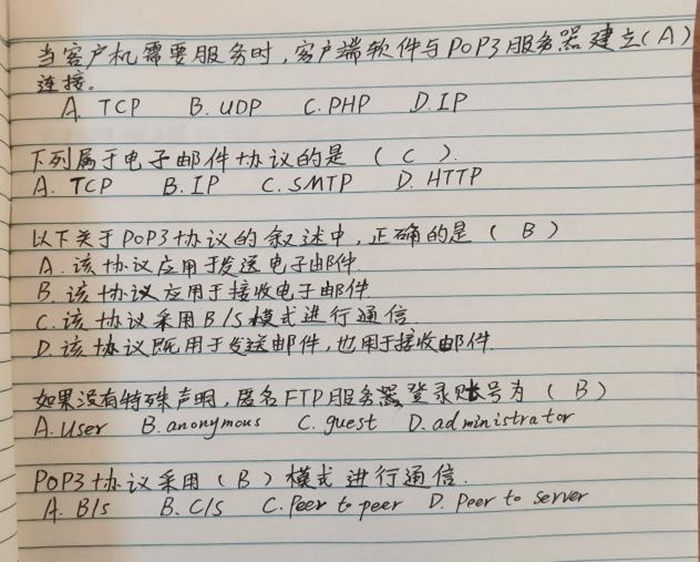 当客户机需要服务时,客户端软件与POP3服务器建立(A)
连接。
A. TCP B. UDP C. PHP D. IP
下列属于电子邮件协议的是 ( C ).
A. TCP B. IP C. SMTP D. HTTP
以下关于POP3协议的叙述中,正确的是 ( B )
A. 该协议应用于发送电子邮件.
B. 该协议应用于接收电子邮件
C. 该协议采用B/S模式进行通信
D. 该协议既用于发送邮件,也用于接收邮件.
如果没有特殊声明,匿名FTP服务器登录账号为 ( B )
A. User B. anonymous C. guest D. administrator
POP3协议采用 ( B ) 模式进行通信.
A. B/s B. C/S C. Peer to peer D. Peer to server